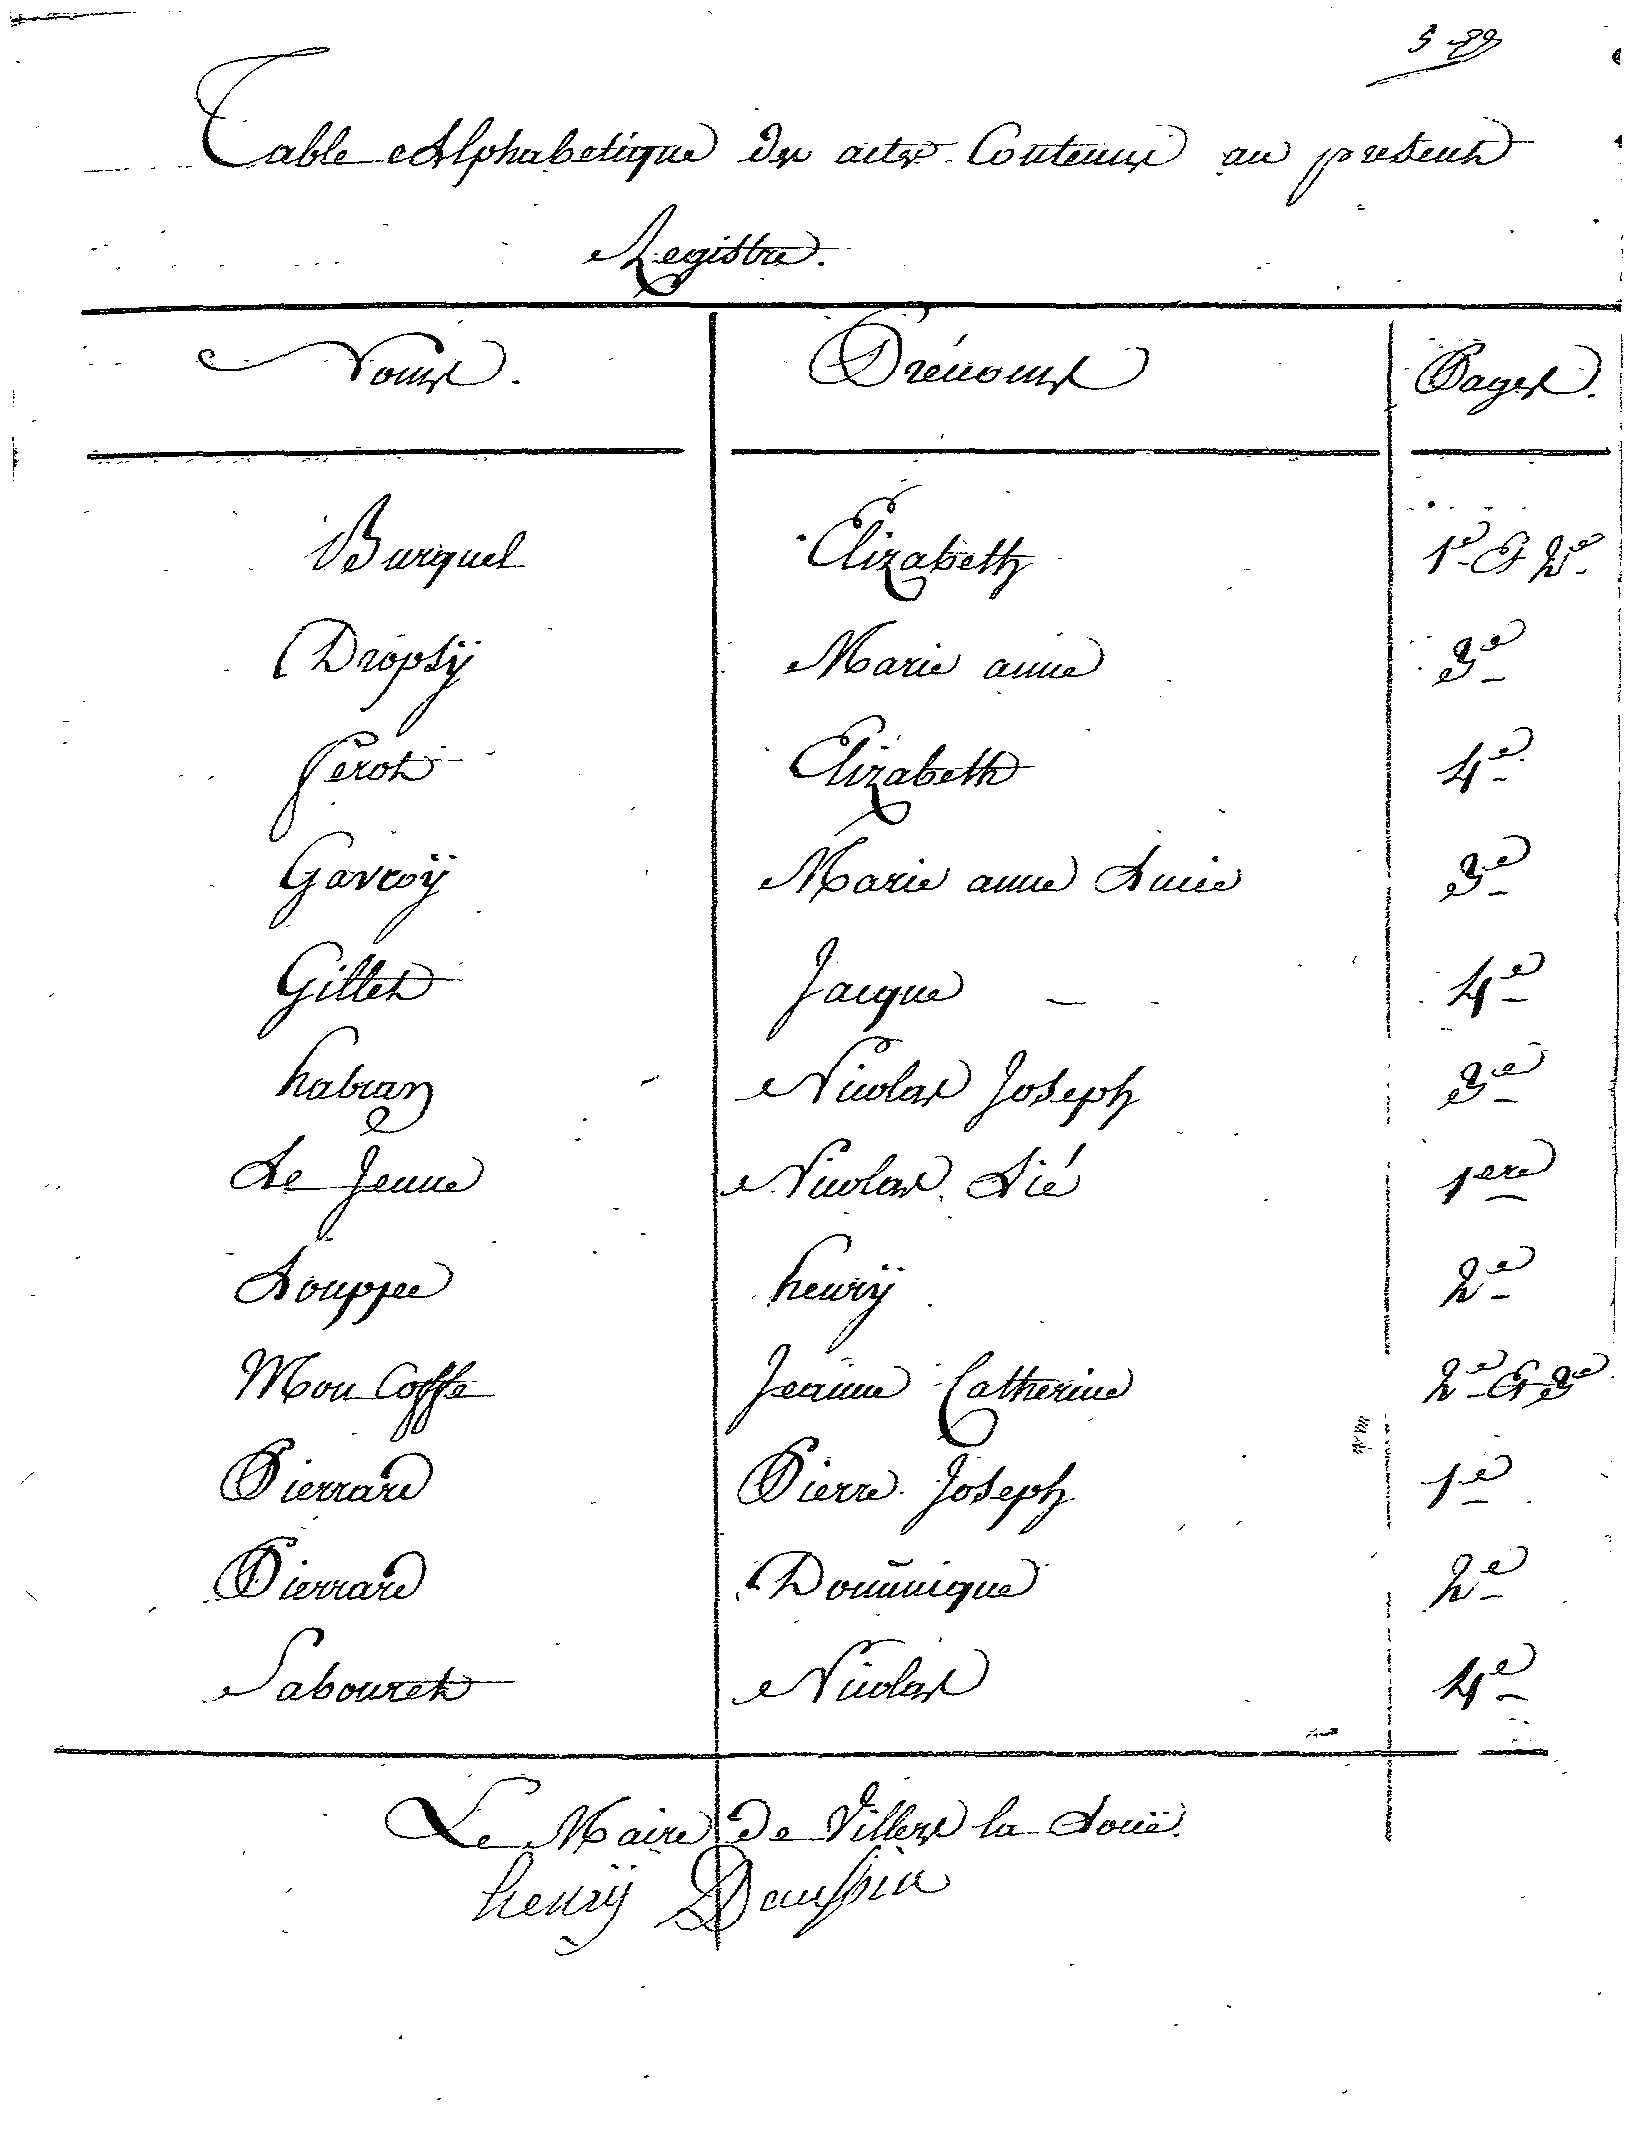 Table Alphabetique des actes Contenus au present
Registre.
Noms. Prénoms Pages.
Burquel Elizabeth 1e Et 2e
Dropsÿ Marie anne 3e
ferot Elizabeth 4e
Gavroÿ Marie anne Lucie 3e
Gillet Jacque 4e
habran Nicolas Joseph 3e
Le Jeune Nicolas Lié 1ere
Louppe henrÿ 2e
Mon Coffe Jeanne Catherine 2e Et 3e
Pierrard Pierre Joseph 1e
Pierrard Dominique 2e
Sabouret Nicolas 4e
Le Maire de Villers la Loüe.
henrÿ